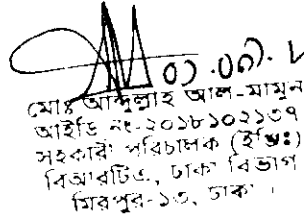 ০১.০৬).
মোঃ আব্দুল্লাহ আল-মামুন
আইডি নং-২০১৮১০২১৩৭
সহকারী পরিচালক (ইঞ্জিঃ)
বিআরটিএ, ঢাকা বিভাগ
মিরপুর-১৩, ঢাকা ।